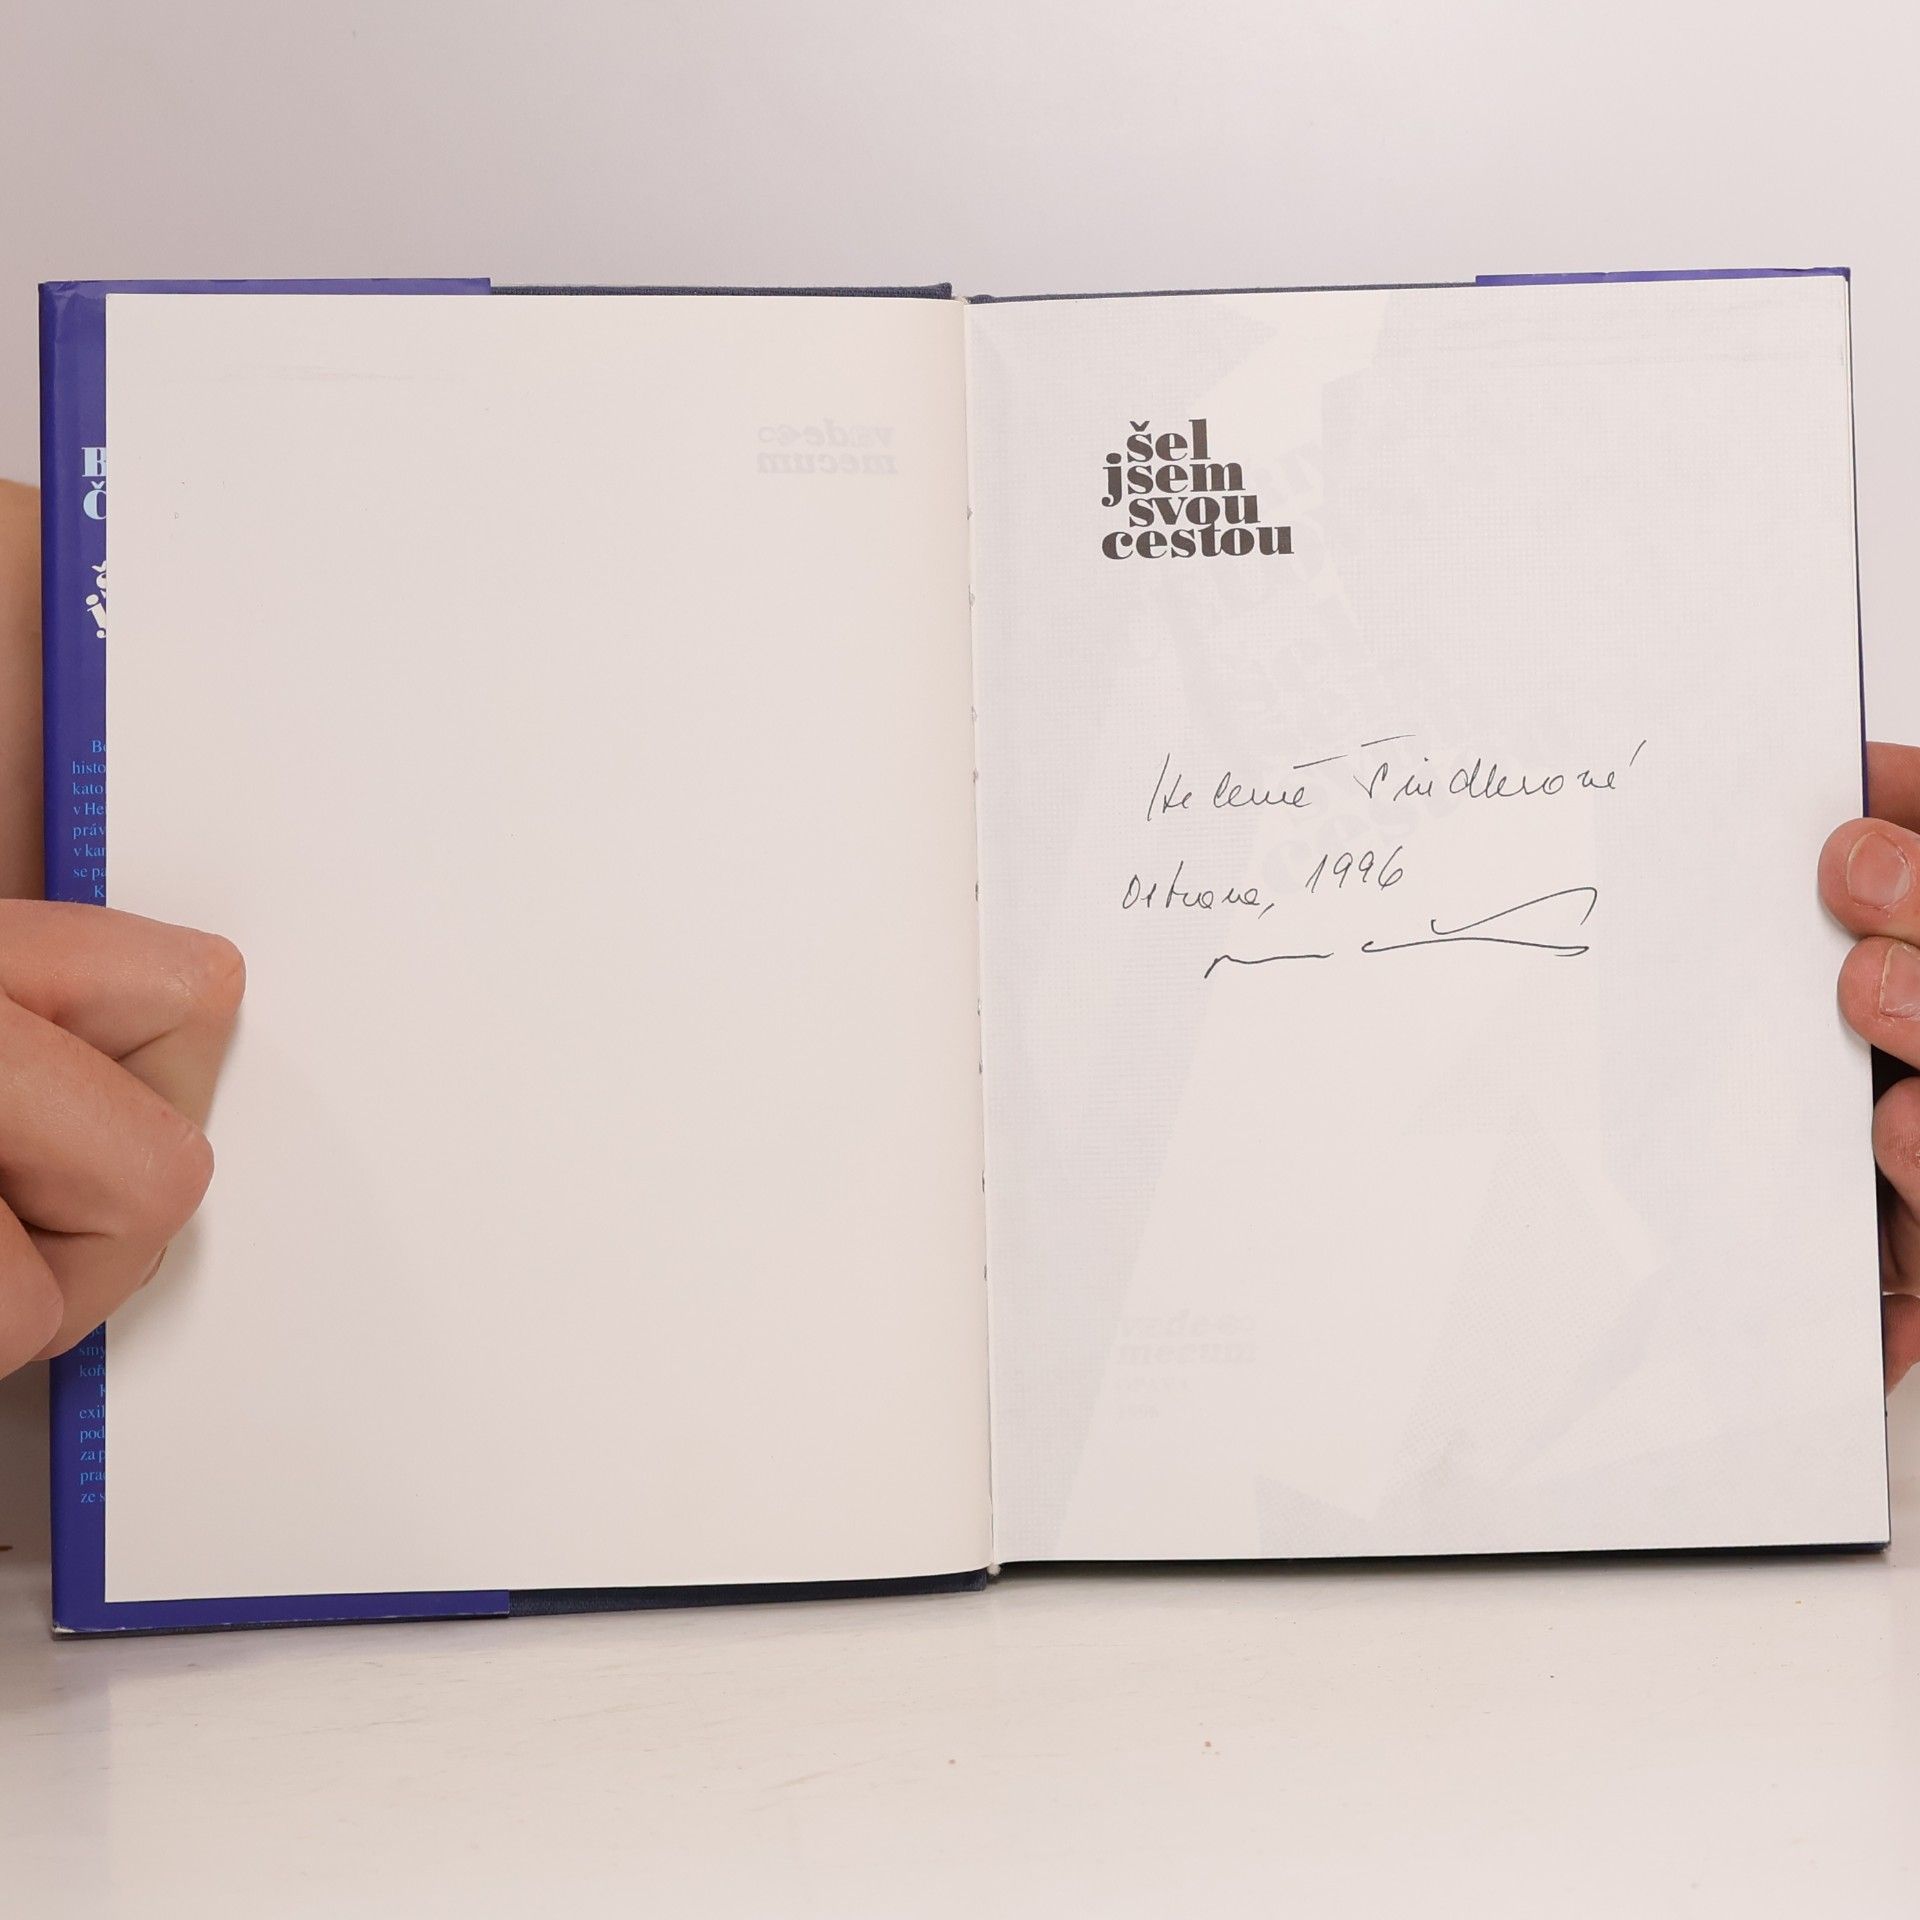 B
Č
š
j
Bo
histo
kato
v Hei
práv
v kan
se pa
K
smy
koř
K
exil
pod
za p
prac
ze s
vade
mecum
šel
jsem
svou
cestou
Heleně Šindlerové
Ostrava, 1996
vade
mecum
1996